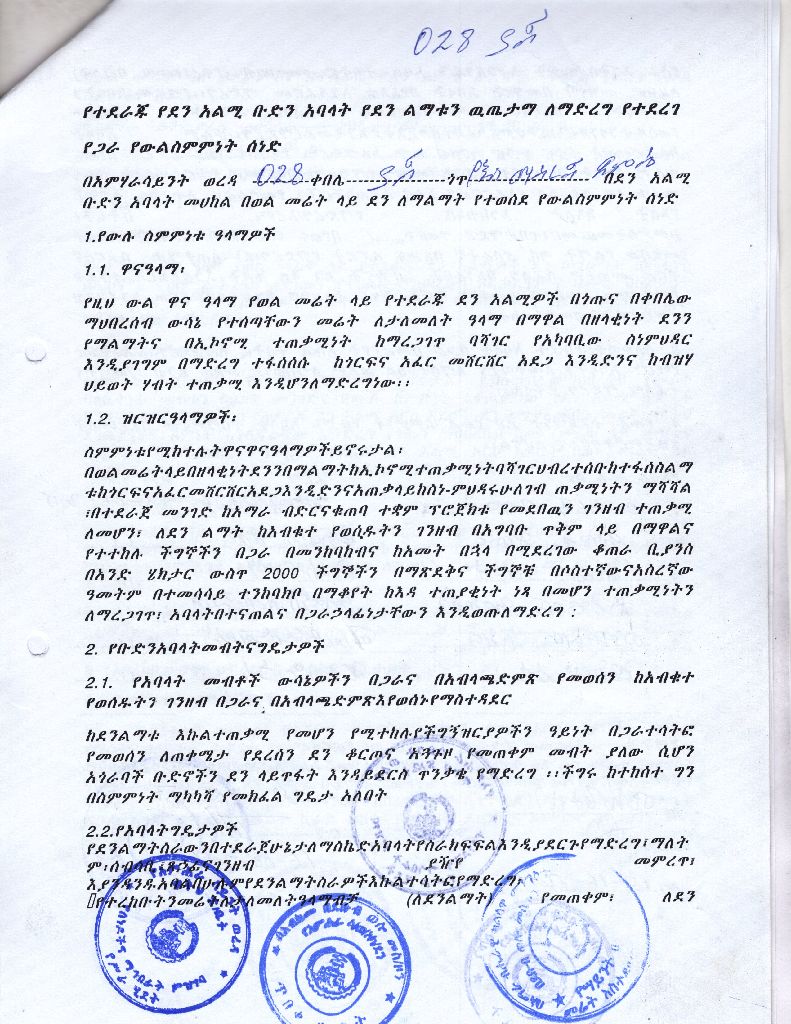 028
የተደራጁ የደን አልሚ ቡድን አባላት የደን ልማቱን ዉጤታማ ለማድረግ የተደረገ
የጋራ የውልስምምነት ሰነድ
በአምሃራሳይንት ወረዳ 028 ቀበሌ ጎጥ በደን አልሚ
ቡድን አባላት መሀከል በወል መሬት ላይ ደን ለማልማት የተወሰደ የውልስምምነት ሰነድ
1.የውሉ ስምምነቱ ዓላማዎች
1.1. ዋናዓላማ፡
የዚህ ውል ዋና ዓላማ የወል መሬት ላይ የተደራጁ ደን አልሚዎች በጎጡና በቀበሌው
ማህበረሰብ ውሳኔ የተሰጣቸውን መሬት ለታለመለት ዓላማ በማዋል በዘላቂነት ደንን
የማልማትና በኢኮኖሚ ተጠቃሚነት ከማረጋገጥ ባሻገር የአካባቢው ስነምህዳር
እንዲያገግም በማድረግ ተፋሰሰሱ ከጎርፍና አፈር መሸርሸር አደጋ እንዲድንና ከብዝሃ
ህይወት ሃብት ተጠቃሚ እንዲሆንለማድረግነው፡፡
1.2. ዝርዝርዓላማዎች፡
ስምምነቱየሚከተሉትዋናዋናዓላማዎችይኖሩታል፡
በወልመሬትላይበዘላቂነትደንንበማልማትከኢኮኖሚተጠቃሚነትባሻገርህብረተሰቡከተፋሰስልማ
ቱከጎርፍናአፈርመሸርሸርአደጋእንዲድንናአጠቃላይከስነ-ምህዳሩሁለገብ ጠቃሚነትን ማሻሻል
፤በተደራጀ መንገድ ከአማራ ብድርናቁጠባ ተቋም ፕሮጀክቱ የመደበዉን ገንዘብ ተጠቃሚ
ለመሆን፤ ለደን ልማት ከአብቁተ የወሰዱትን ገንዘብ በአግባቡ ጥቅም ላይ በማዋልና
የተተከሉ ችግኞችን በጋራ በመንከባከብና ከአመት በኋላ በሚደረገው ቆጠራ ቢያንስ
በአንድ ሄክታር ውስጥ 2000 ችግኞችን በማጽደቅና ችግኞቹ በሶስተኛውናአስረኛው
ዓመትም በተመሳሳይ ተንከባክቦ በማቆየት ከእዳ ተጠያቂነት ነጻ በመሆን ተጠቃሚነትን
ለማረጋገጥ፤ አባላትበተናጠልና በጋራኃላፊነታቸውን እንዲወጡለማድረግ ፡
2. የቡድንአባላትመብትናግዴታዎች
2.1. የአባላት መብቶች ውሳኔዎችን በጋራና በአብላጫድምጽ የመወሰን ከአብቁተ
የወሰዱትን ገንዘብ በጋራና በአብላጫድምጽእየወሰኑየማስተዳደር
ከደንልማቱ እኩልተጠቃሚ የመሆን የሚተከሉየችግኝዝርያዎችን ዓይነት በጋራተሳትፎ
የመወሰን ለጠቀሜታ የደረሰን ደን ቆርጦና አጓጉዞ የመጠቀም መብት ያለው ሲሆን
አጎራባች ቡድኖችን ደን ላይጥፋት እንዳይደርስ ጥንቃቄ የማድረግ ፡፡ችግሩ ከተከሰተ ግን
በስምምነት ማካካሻ የመክፈል ግዴታ አለበት
2.2.የአባላትግዴታዎች
የደንልማትስራውንበተደራጀሁኔታለማስኬድአባላትየስራክፍፍልእንዲያደርጉየማድረግ፤ማለት
ም፡ሰብሳቢ፣ጸኃፊናገንዘብ ያዥየ መምረጥ፤
እያንዳንዱአባልበሁሉምየደንልማትስራዎችእኩልተሳትፎየማድረግ፤
የተረከቡትንመሬትለታለመለትዓላማብቻ (ለደንልማት) የመጠቀም፤ ለደን